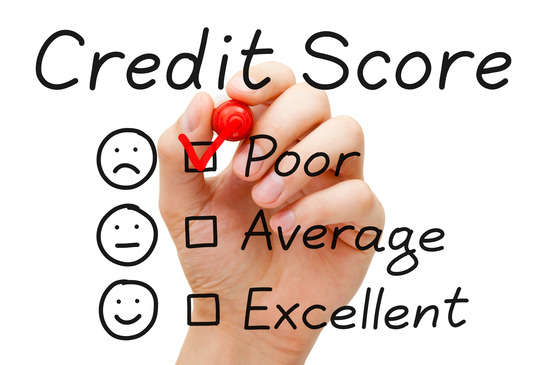 Credit Score
Poor
Average
Excellent